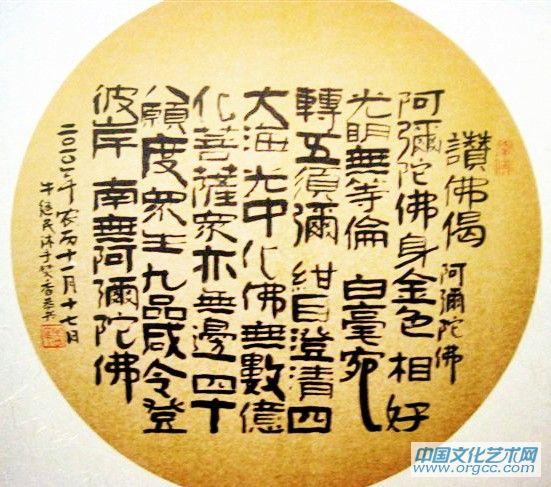 讚佛偈 阿彌陀佛
阿彌陀佛身金色相好
光明無等倫 白毫宛
轉五須彌 紺目澄清四
大海光中化佛無數億
化菩薩眾亦無邊四十
八願度眾生九品咸令登
彼岸 南無阿彌陀佛
年农历十一月十七日
牛继民沐手焚香恭书
中国文化艺术网
www.orgcc.com